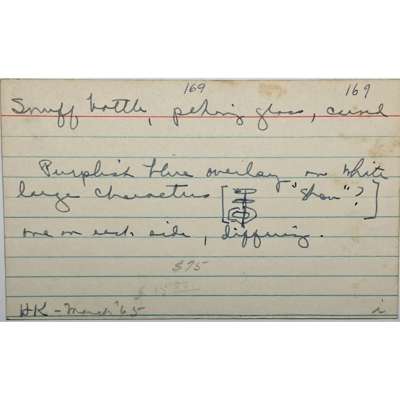 169 169
Snuff bottle, peking glass, cased
Purplish blue overlay on white
large characters [ "Shou"? ]
one on each side, differing.
$75
HK - March '65 i